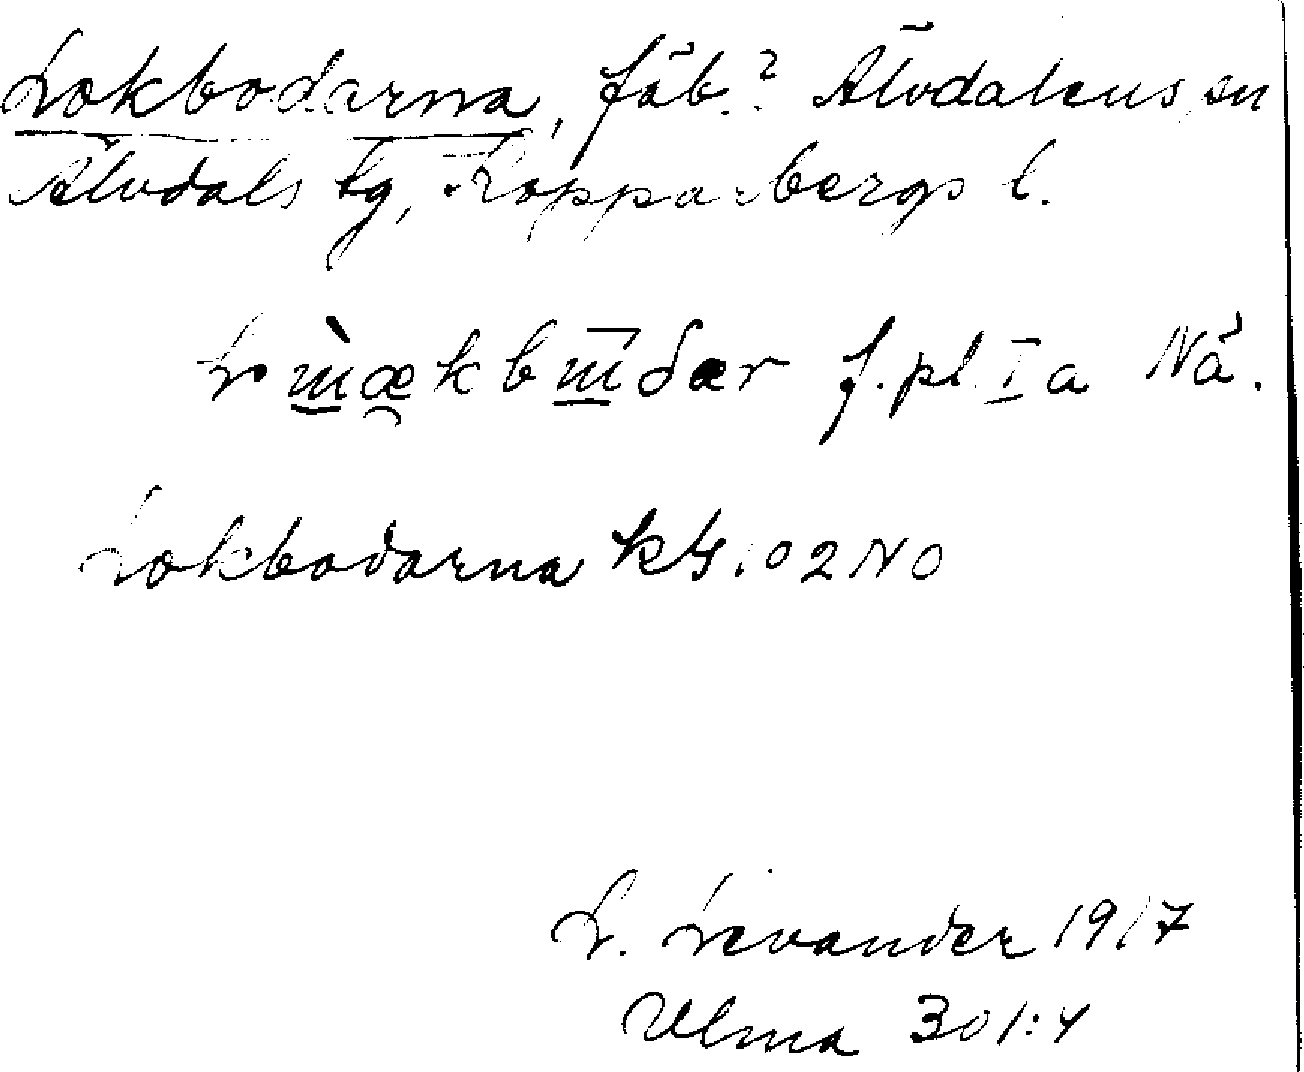 Lokbodarna, fäb.? Älvdalens sn
Älvdals tg, Kopparbergs l.
f. pl. I a Nå.
Lokbodarna kbl. 102 NO
L. Levander 1917
Ulma 301:4